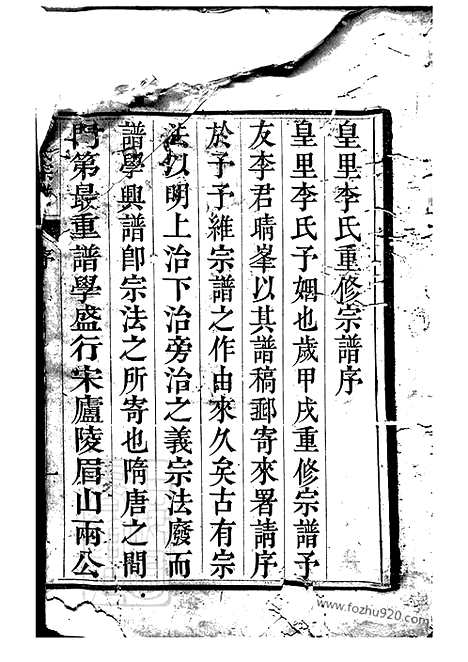 皇里李氏重修宗譜序
皇里李氏予姻也歲甲戌重修宗譜予
友李君晴峯以其譜稿郵寄來署請序
於予予維宗譜之作由來久矣古有宗
法以明上治下治旁治之義宗法廢而
譜學興譜卽宗法之所寄也隋唐之間
門第最重譜學盛行宋廬陵眉山兩公
序
www.fozhu920.com